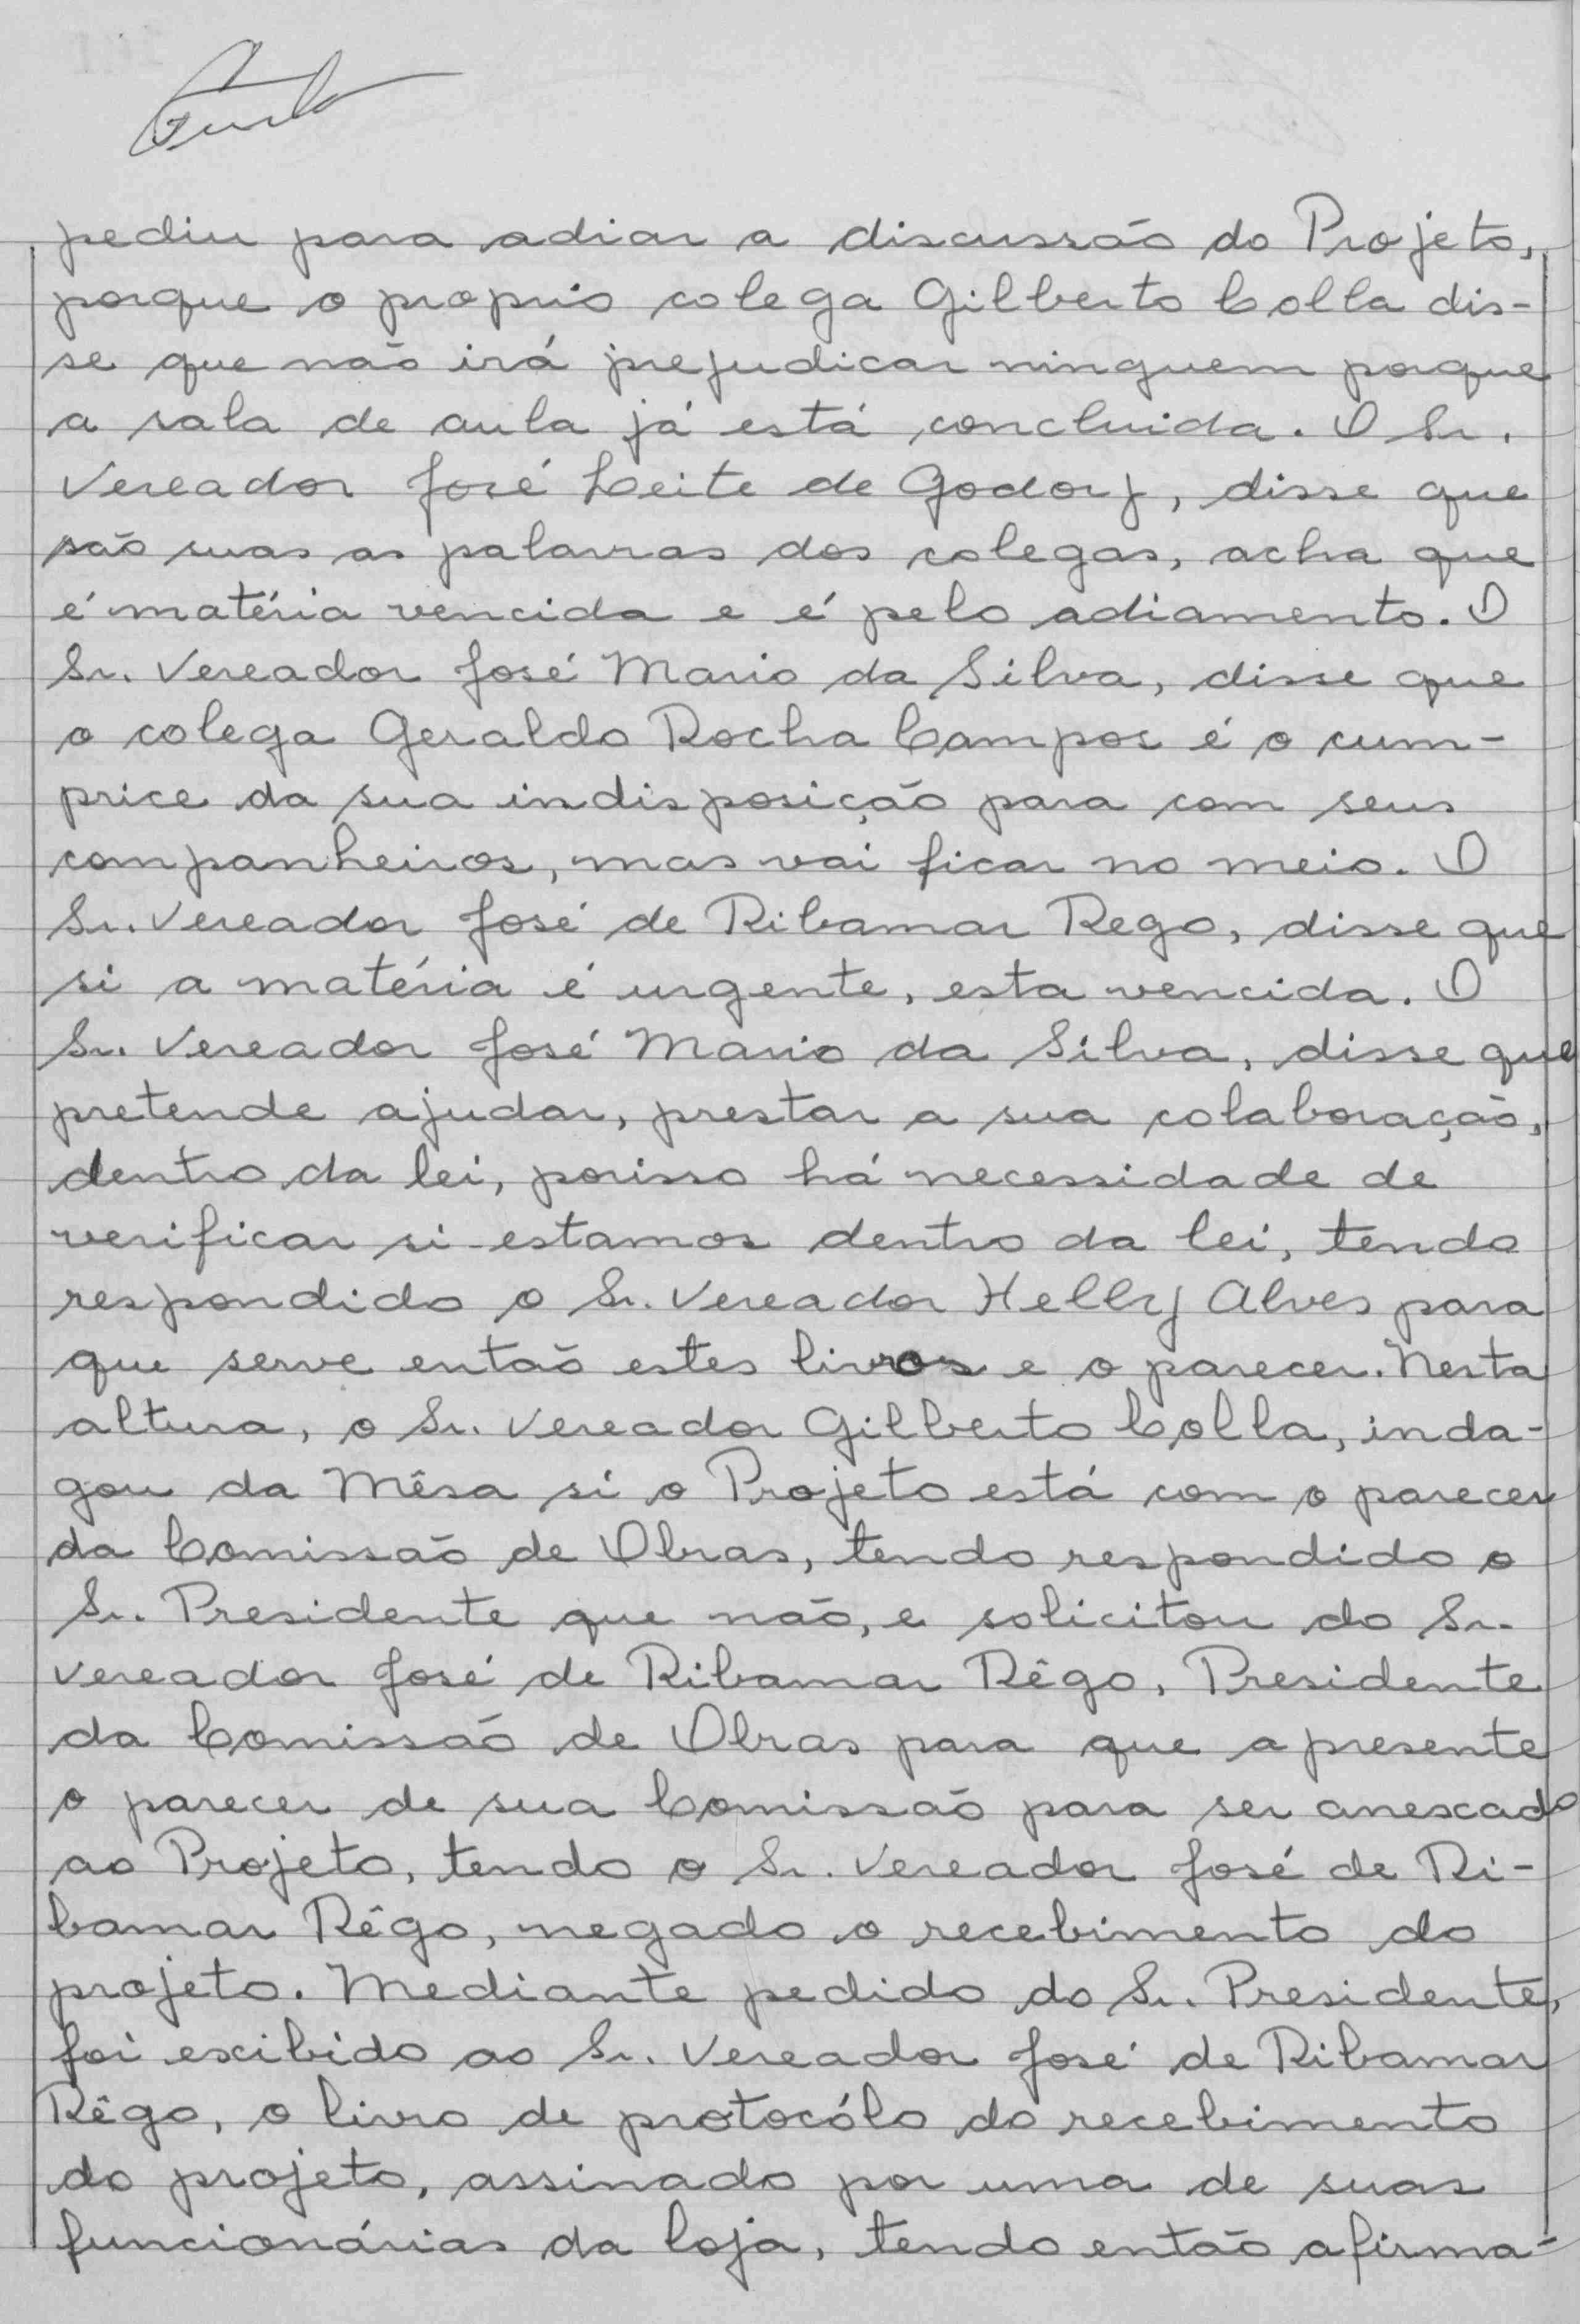 pediu para adiar a discussão do Projeto,
porque o proprio colega Gilberto Colla dis-
se que não irá prejudicar ninguem porque
a sala de aula já está concluida. O Sr.
Vereador José Leite de Godoy, disse que
são suas as palavras dos colegas, acha que
é matéria vencida e é pelo adiamento. O
Sr. Vereador José Mario da Silva, disse que
o colega Geraldo Rocha Campos é o cum-
price da sua indisposição para com seus
companheiros, mas vai ficar no meio. O
Sr. Vereador José de Ribamar Rego, disse que
si a matéria é urgente, esta vencida. O
Sr. Vereador José Mario da Silva, disse que
pretende ajudar, prestar a sua colaboração,
dentro da lei, porisso há necessidade de
verificar si estamos dentro da lei, tendo
respondido o Sr. Vereador Helly Alves para
que serve então estes livros e o parecer. Nesta
altura, o Sr. Vereador Gilberto Colla, inda-
gou da Mêsa si o Projeto está com o parecer
da Comissão de Obras, tendo respondido o
Sr. Presidente que não, e solicitou do Sr.
Vereador José de Ribamar Rêgo, Presidente
da Comissão de Obras para que apresente
o parecer de sua Comissão para ser anexado
ao Projeto, tendo o Sr. Vereador José de Ri-
bamar Rêgo, negado o recebimento do
projeto. Mediante pedido do Sr. Presidente,
foi exibido ao Sr. Vereador José de Ribamar
Rêgo, o livro de protocólo do recebimento
do projeto, assinado por uma de suas
funcionárias da loja, tendo então afirma-